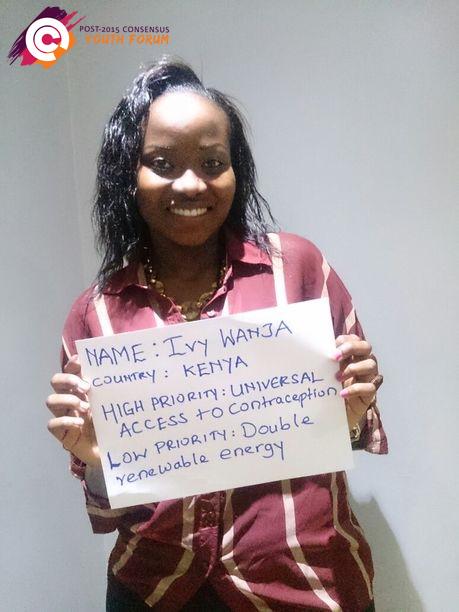 POST-2015 CONSENSUS
YOUTH FORUM
NAME: IVY WANJA
COUNTRY: KENYA
HIGH PRIORITY: UNIVERSAL
ACCESS to Contraception
LOW PRIORITY: Double
renewable energy